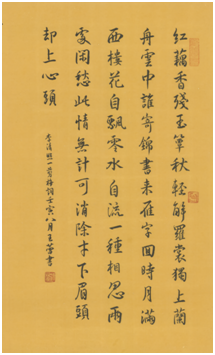 紅藕香殘玉簟秋輕解羅裳獨上蘭
舟雲中誰寄錦書来雁字回時月滿
西樓花自飄零水自流一種相思兩
處閑愁此情無計可消除才下眉頭
却上心頭
李清照一剪梅詞壬寅八月王書